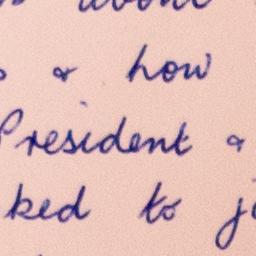 about
& how
President &
ked to